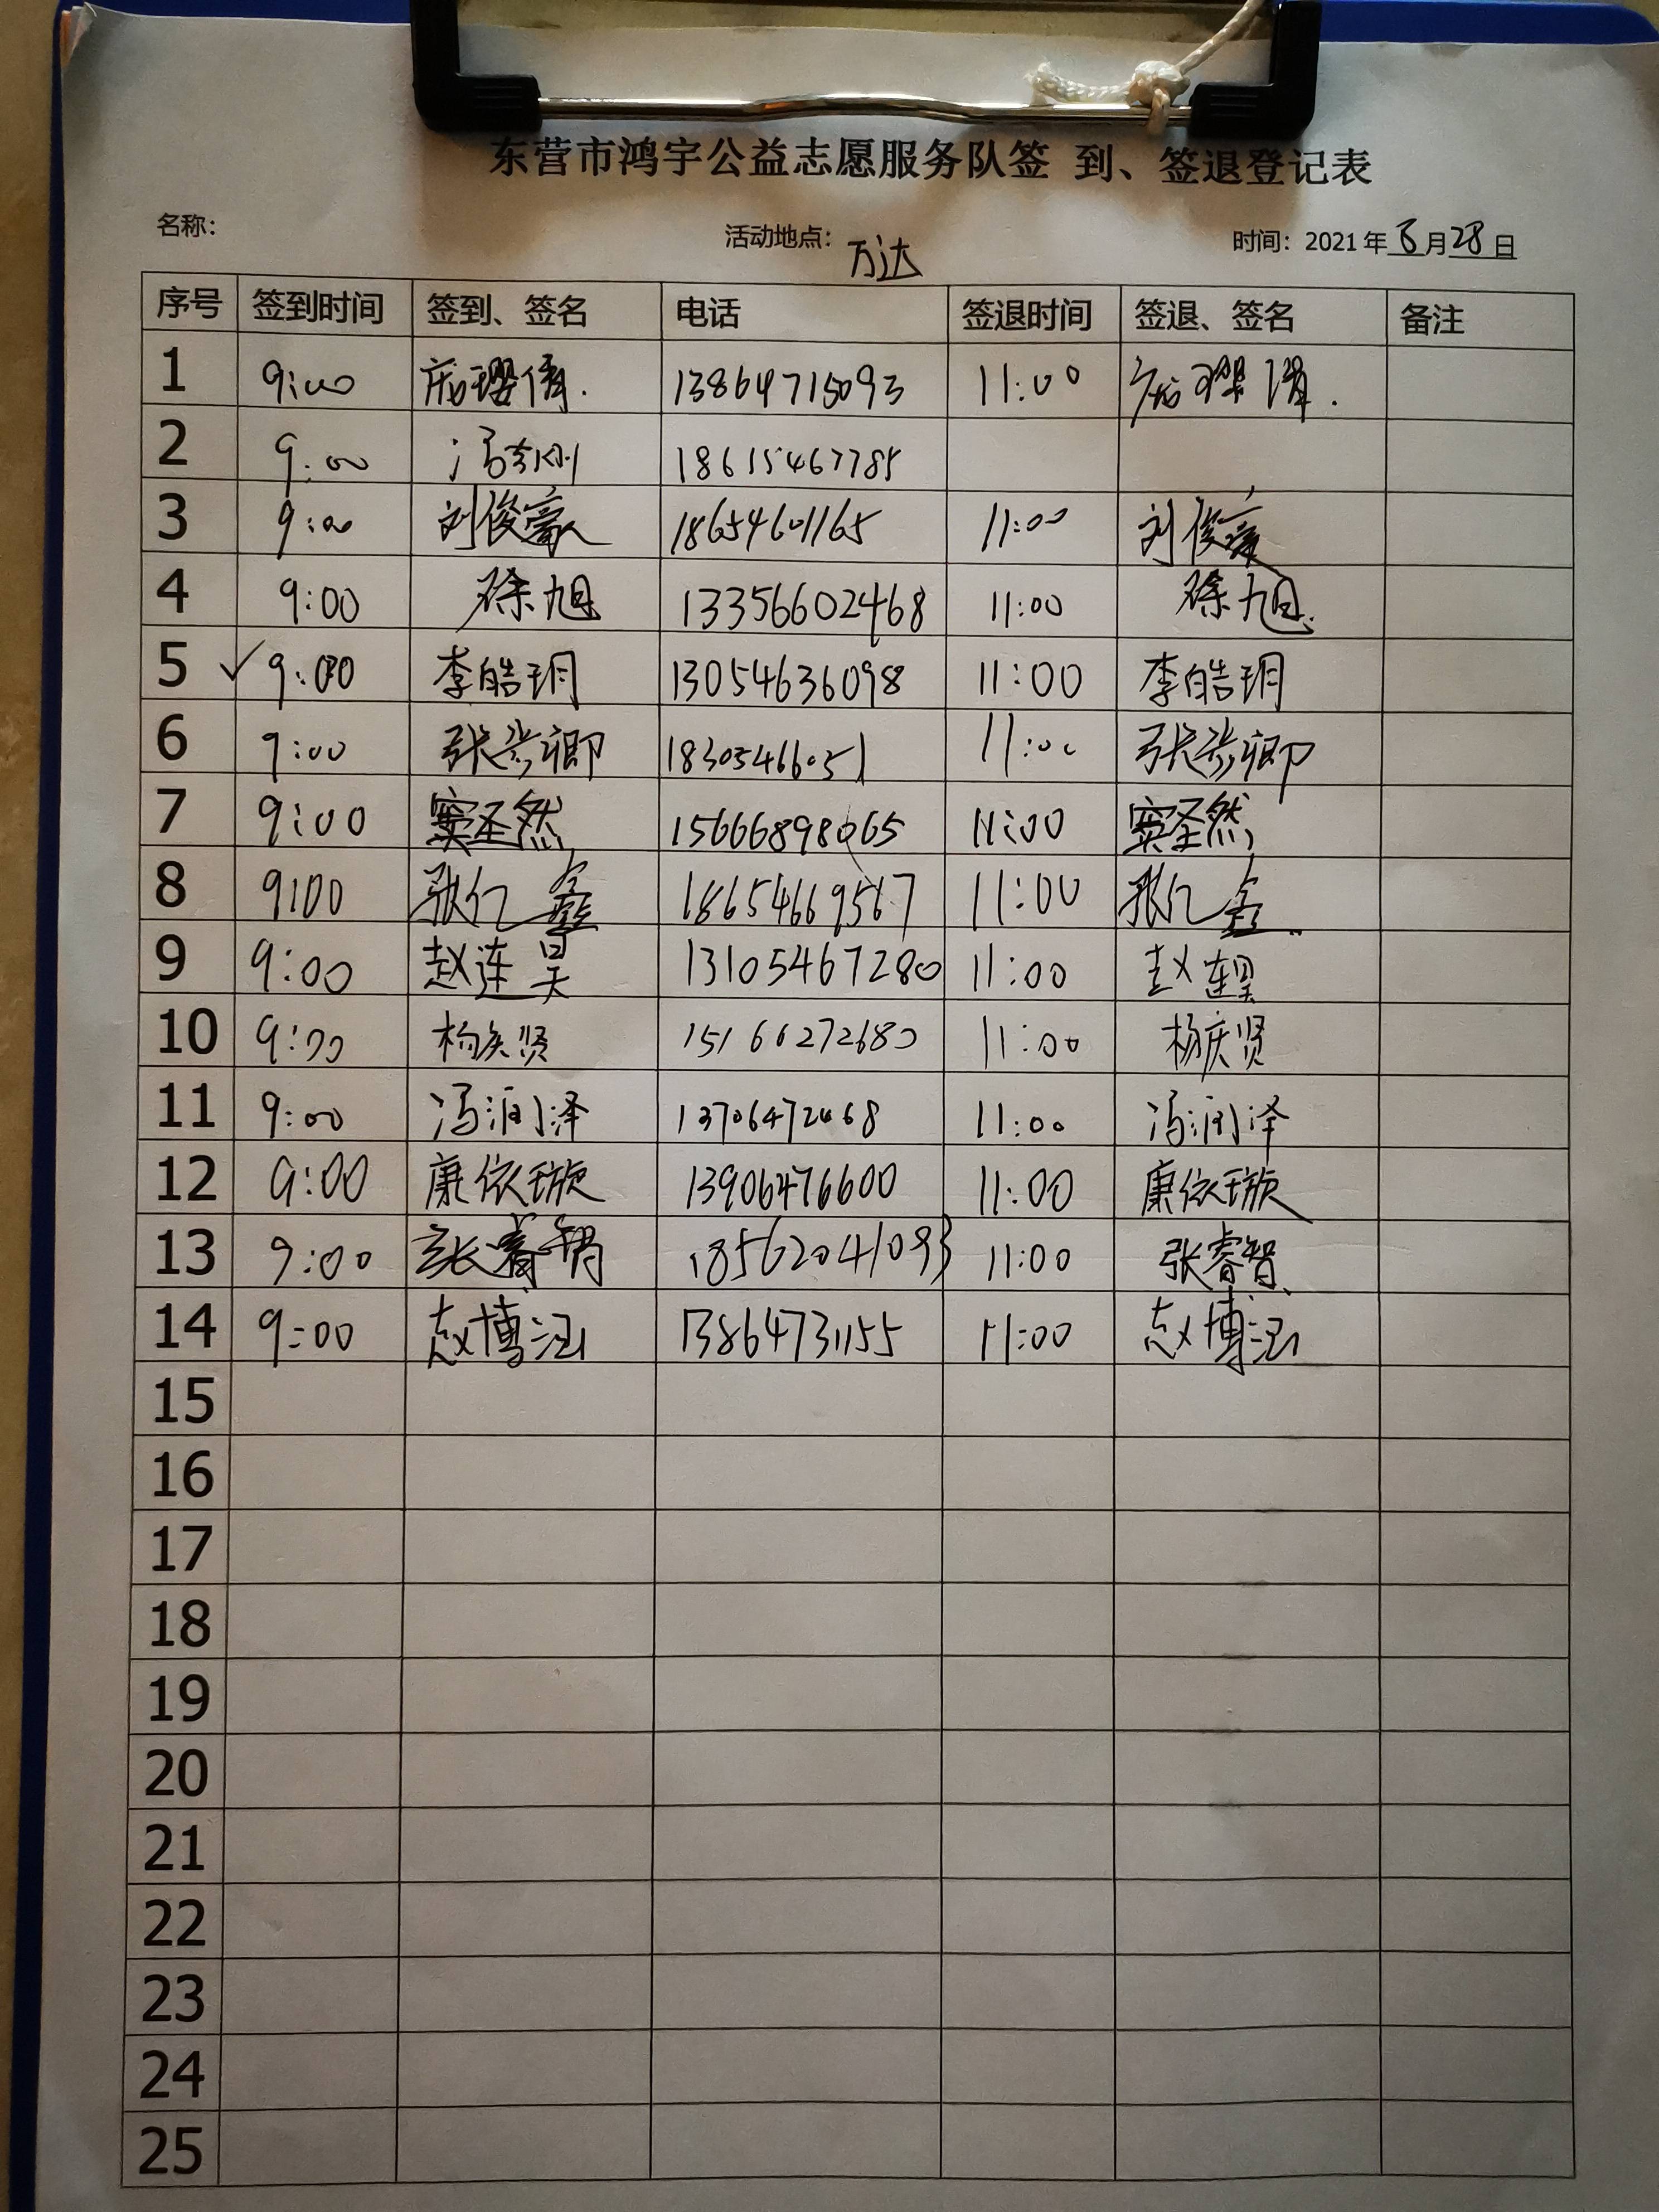 东营市鸿宇公益志愿服务队签 到、签退登记表
名称： 活动地点：万达 时间：2021年 月28日
序号 签到时间 签到、签名 电话 签退时间 签退、签名 备注
1 9:00 13864715093 11:00
2 9:00 18615467785
3 9:00 刘俊豪 18654601165 11:00 刘俊豪
4 9:00 徐旭 13356602468 11:00 徐旭
5 ✓9:00 李皓玥 13054636098 11:00 李皓玥
6 9:00 18305466051 11:00
7 9:00 窦圣然 15666898065 11:00 窦圣然
8 9:00 张仁鑫 18654669567 11:00 张仁鑫
9 9:00 赵连昊 13105467280 11:00 赵连昊
10 9:00 杨庆贤 15166272680 11:00 杨庆贤
11 9:00 冯润泽 13706472468 11:00 冯润泽
12 9:00 康依璇 13906476600 11:00 康依璇
13 9:00 张睿智 18562041093 11:00 张睿智
14 9:00 赵博涵 13864731155 11:00 赵博涵
15
16
17
18
19
20
21
22
23
24
25